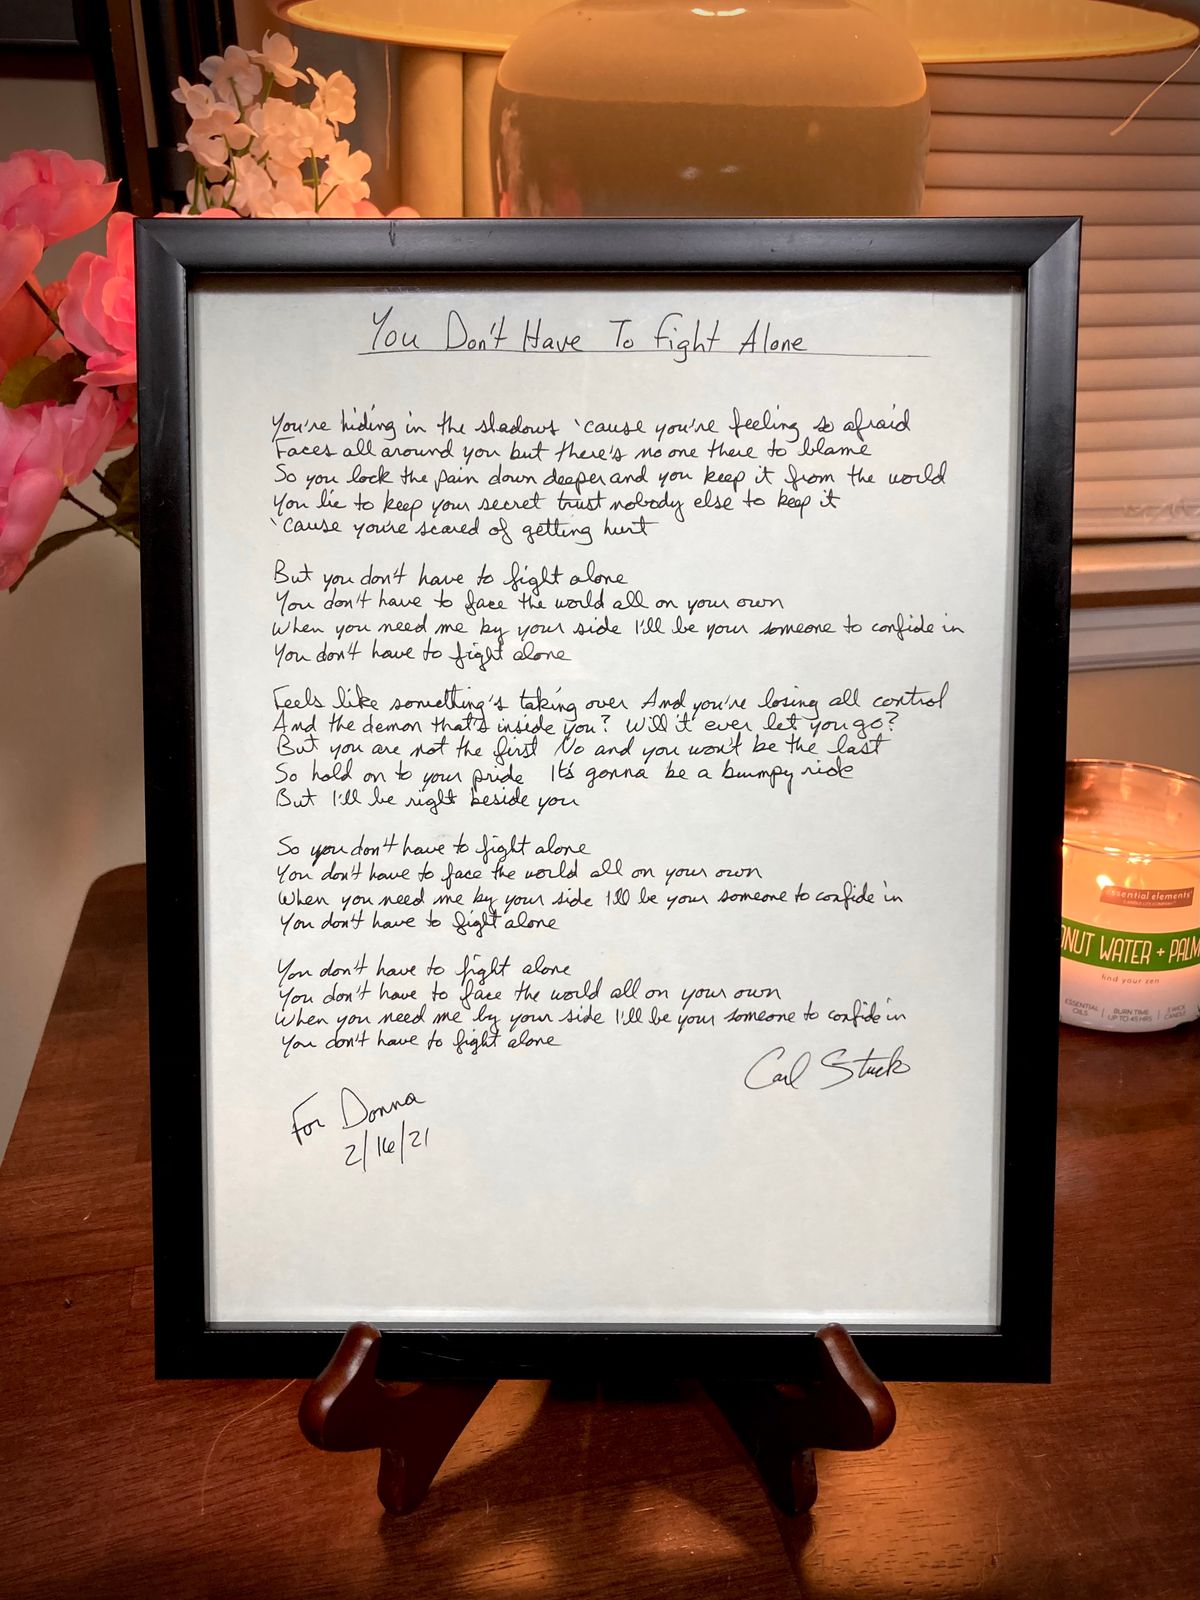 You Don't Have To Fight Alone
You're hiding in the shadows 'cause you're feeling so afraid
Faces all around you but there's no one there to blame
So you lock the pain down deeper and you keep it from the world
You lie to keep your secret trust nobody else to keep it
'cause you're scared of getting hurt
But you don't have to fight alone
You don't have to face the world all on your own
When you need me by your side I'll be your someone to confide in
You don't have to fight alone
Feels like something's taking over And you're losing all control
And the demon that's inside you? Will it ever let you go?
But you are not the first No and you won't be the last
So hold on to your pride It's gonna be a bumpy ride
But I'll be right beside you
So you don't have to fight alone
You don't have to face the world all on your own
When you need me by your side I'll be your someone to confide in
You don't have to fight alone
You don't have to fight alone
You don't have to face the world all on your own
When you need me by your side I'll be your someone to confide in
You don't have to fight alone
Carl Stuck
For Donna
2/16/21
essential elements
NUT WATER + PALM
find your zen
ESSENTIAL OILS
BURN TIME UP TO 45 HRS
CANDLE